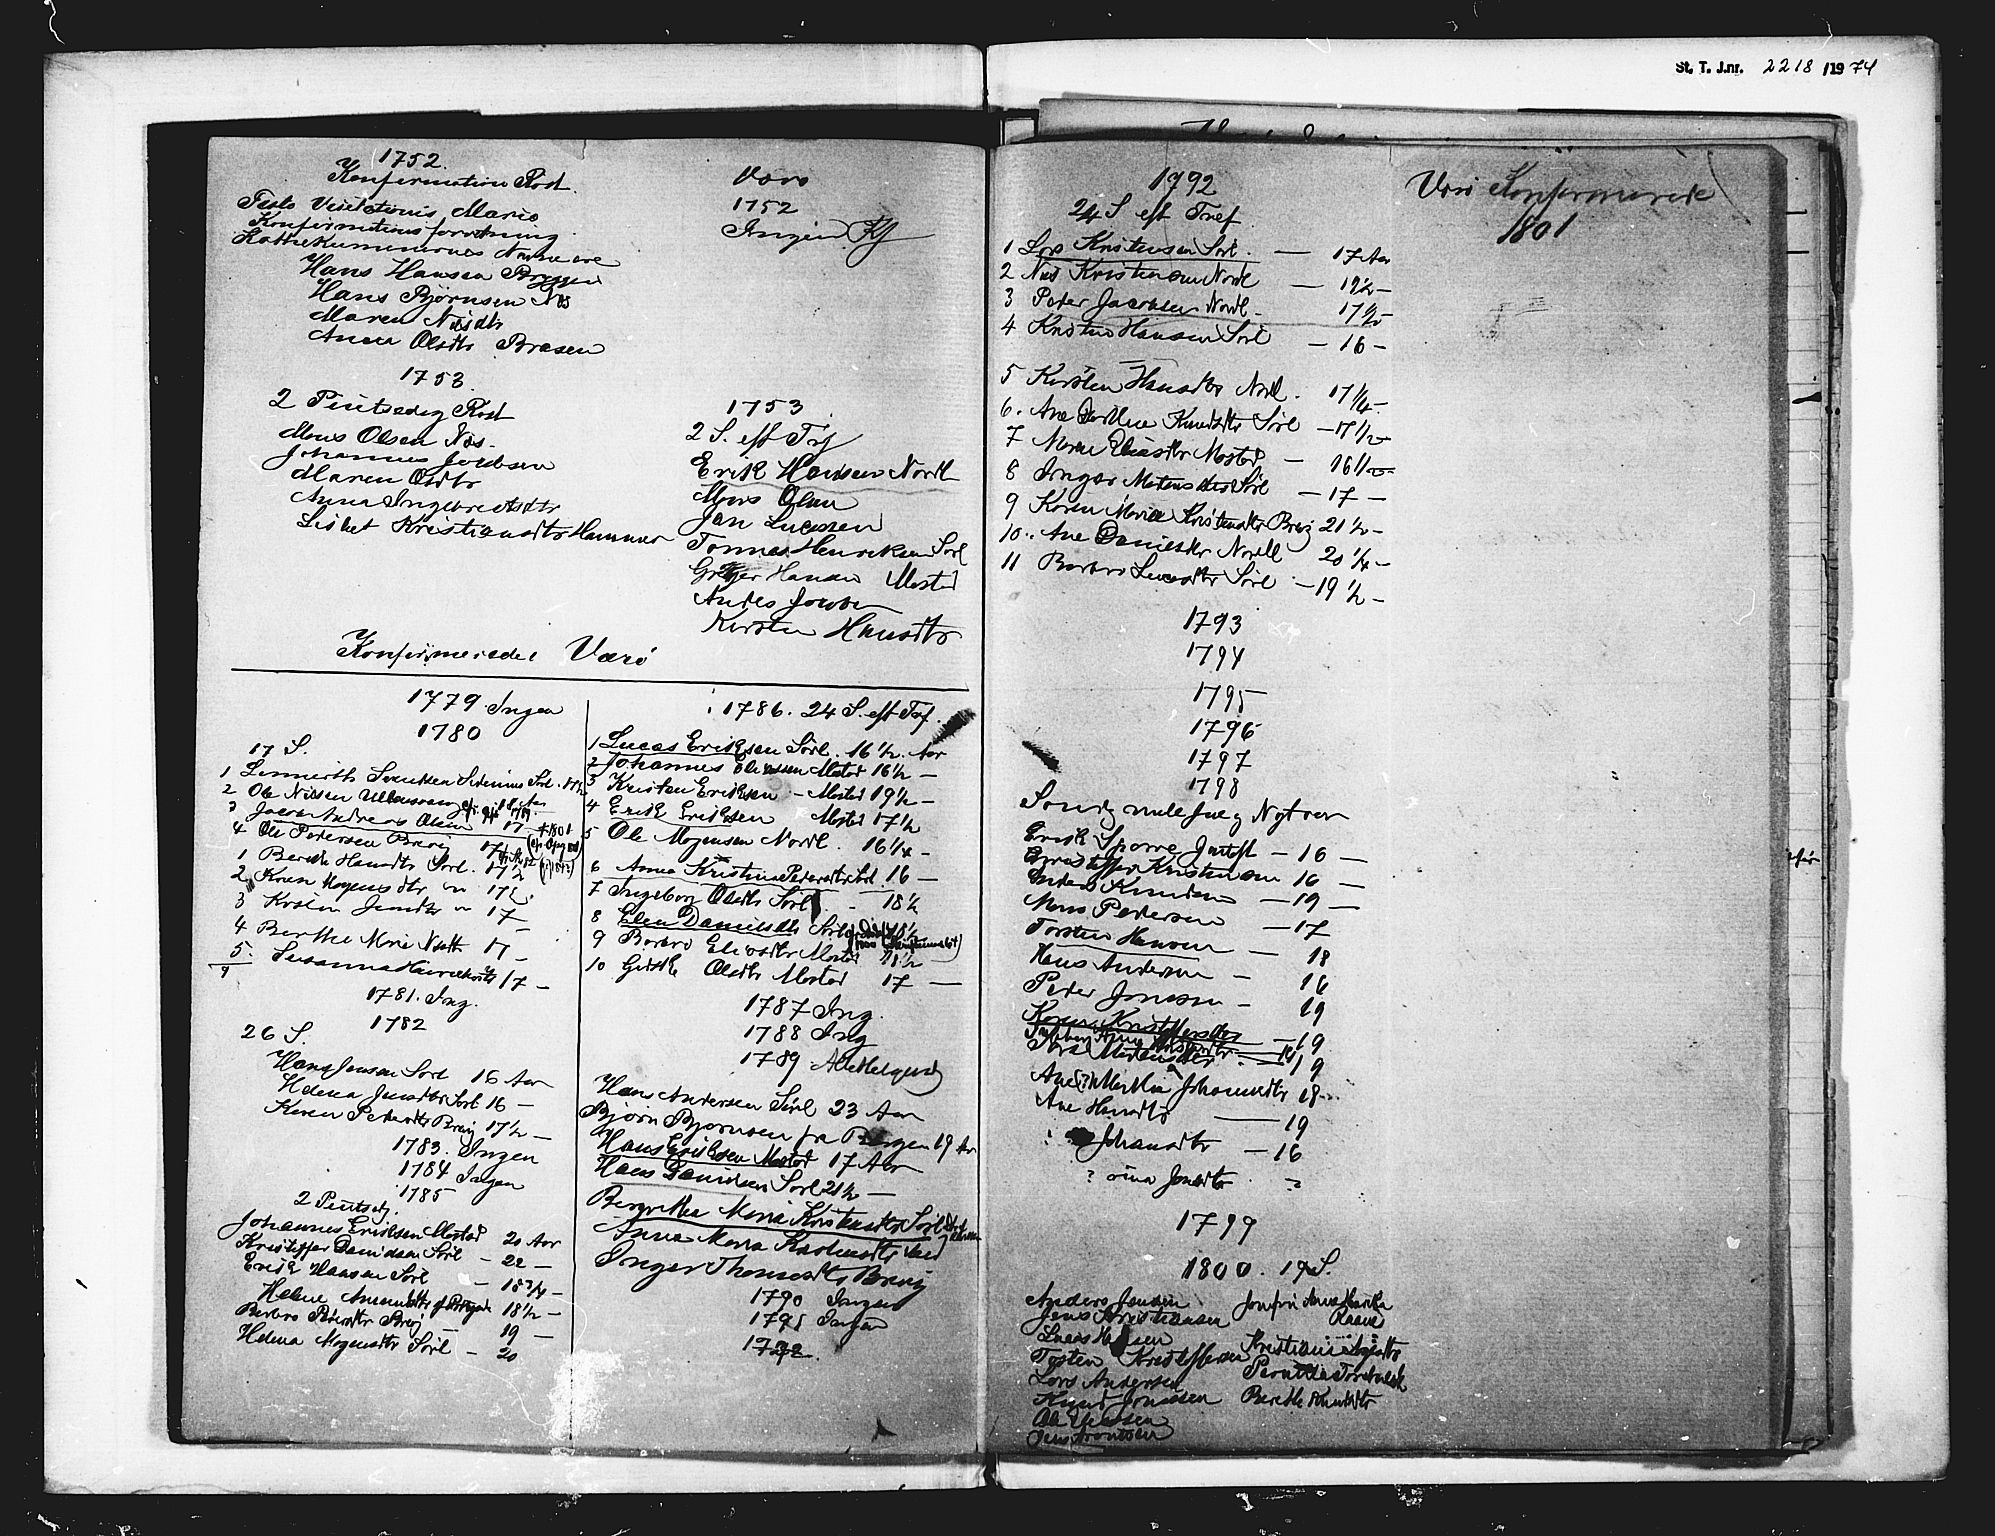 St. T. J.nr. 2218 /1974
1752.
Konfirmation Røst.
Festo Visitationis Mariæ
Konfirmations forretning
Kathekumenernes Navne ere
Hans Hansen
Hans Bjørnsen Næs
Maren Nilsdtr
Anna Olsdtr
1753.
2 Pintsedag Røst
Mons Olsen Næs.
Johannes Jacobsen
Maren Olsdtr
Anna Ingebretsdtr
Lisbet Kristiansdtr Hammer
Værø
1752
Ingen
1753
2 S. eft Trf
Erik Hansen Nordl
Mons Olsen
Jan Lucassen
Tonnes Henriksen Sørl
Hansen Mostad
Anders Jacobs
Kirsten Hansdtr
Konfirmerede Værø
1779 Ingen
1780
17 S.
1 Lennerth Svendsen Sørl. 17½
2 Ole Nilsen
3 Jacob Andreas Olsen 17 +1801
4 Ole Pedersen Brevig 17
1 Berethe Hansdtr Sørl. 17½
2 Karen Mogensdtr " 17½
3 Kirsten Jensdtr " 17 –
4 Berthe Marie Nilsdtr 17 –
5. Susanna Henriksdtr 17 –
9
1781. Ing.
1782
26 S.
Hans Jensen Sørl 16 Aar
Helena Jensdtr Sørl 16 –
Karen Pedersdtr Brevig 17½ –
1783. Ingen
1784 Ingen
1785
2 Pintsedg.
Johannes Eriksen Mostad 20 Aar
Kristoffer Danielsen Sørl – 22 –
Erik Hansen Sørl – 18¾ –
Helene 18½ –
Barbro Pedersdtr Brevig – 19 –
Helena Mogensdtr Sørl – 20
1786. 24 S. eft Trf.
1 Lucas Eriksen Sørl. 16½. Aar
2 Johannes Eliassen Mostad 16½ –
3 Kristen Eriksen – Mostad 19½ –
4 Erik Eriksen Mostad 17½
5 Ole Mogensen Nordl. 16¼ –
6 Anna Kristina Pedersdtr Sørl. 16 –
7 Ingeborg Olsdtr Sørl – 18½
8 Elen Danielsdtr Sørl
9 Barbro Eliasdtr Mostad
10 Olsdtr Mostad 17 –
1787 Ing.
1788 Ing
1789 Allehelgensd
Hans Andersen Sørl 23 Aar
Bjørn Bjørnsen fra Bergen 19 Aar
Hans Eriksen Mostad 17 Aar
Hans Danielsen Sørl 21½ –
Maria Kristensdtr Sørl
Anna Maria
Inger Thomasdtr Brevig
1790 Ingen
1791 Ingen
1792.
1792
24 S. eft Tref.
1 Lars Kristensen Sørl. – 17 Aar
2 Nils Kristensen Nordl – 19½ –
3 Peder Jacobsen Nordl. – 17½ –
4 Kristen Hansen Sørl – 16 –
5 Kirsten Hansdtr Nordl. 17¼ –
6. Ane Dorthea Knudsdtr Sørl – 17½ –
7 Maren Eliasdtr Mostad – 16½ –
8 Inger Matensdtr Sørl – 17 –
9 Karen Maria Kristensdtr Brevig 21½ –
10. Ane Danielsdtr Nordl 20¼ –
11 Barbro Lucasdtr Sørl – 19½ –
1793
1794
1795
1796
1797
1798
Søndg mell Jul og Nytaar
Erik Sporre – 16 –
Kristoffer Kristensen 16 –
Anders Knudsen – 19 –
Mons Pedersen – 17
Torsten Hansen – 18
Hans Andersen – 16
Peder Jonassen – 19
Karen Kristoffersdtr – 19
Sara Mortensdtr – 19
Ane Martha Johannesdtr 18 –
Ane Hansdtr – 19
Johansdtr – 16
? Jonsdtr ?
1799
1800. 19 S.
Anders Jensen
Jens Kristiansen
Lucas Hansen
Torsten Kristoffersen
Lars Andersen
Knud Jonassen
Ole
Jens Arontsen
Jomfru Anna Marika
Raave
Kristiana
Pernille Torstensdtr
Berethe Knudsdtr
Værø Konfirmerede
1801